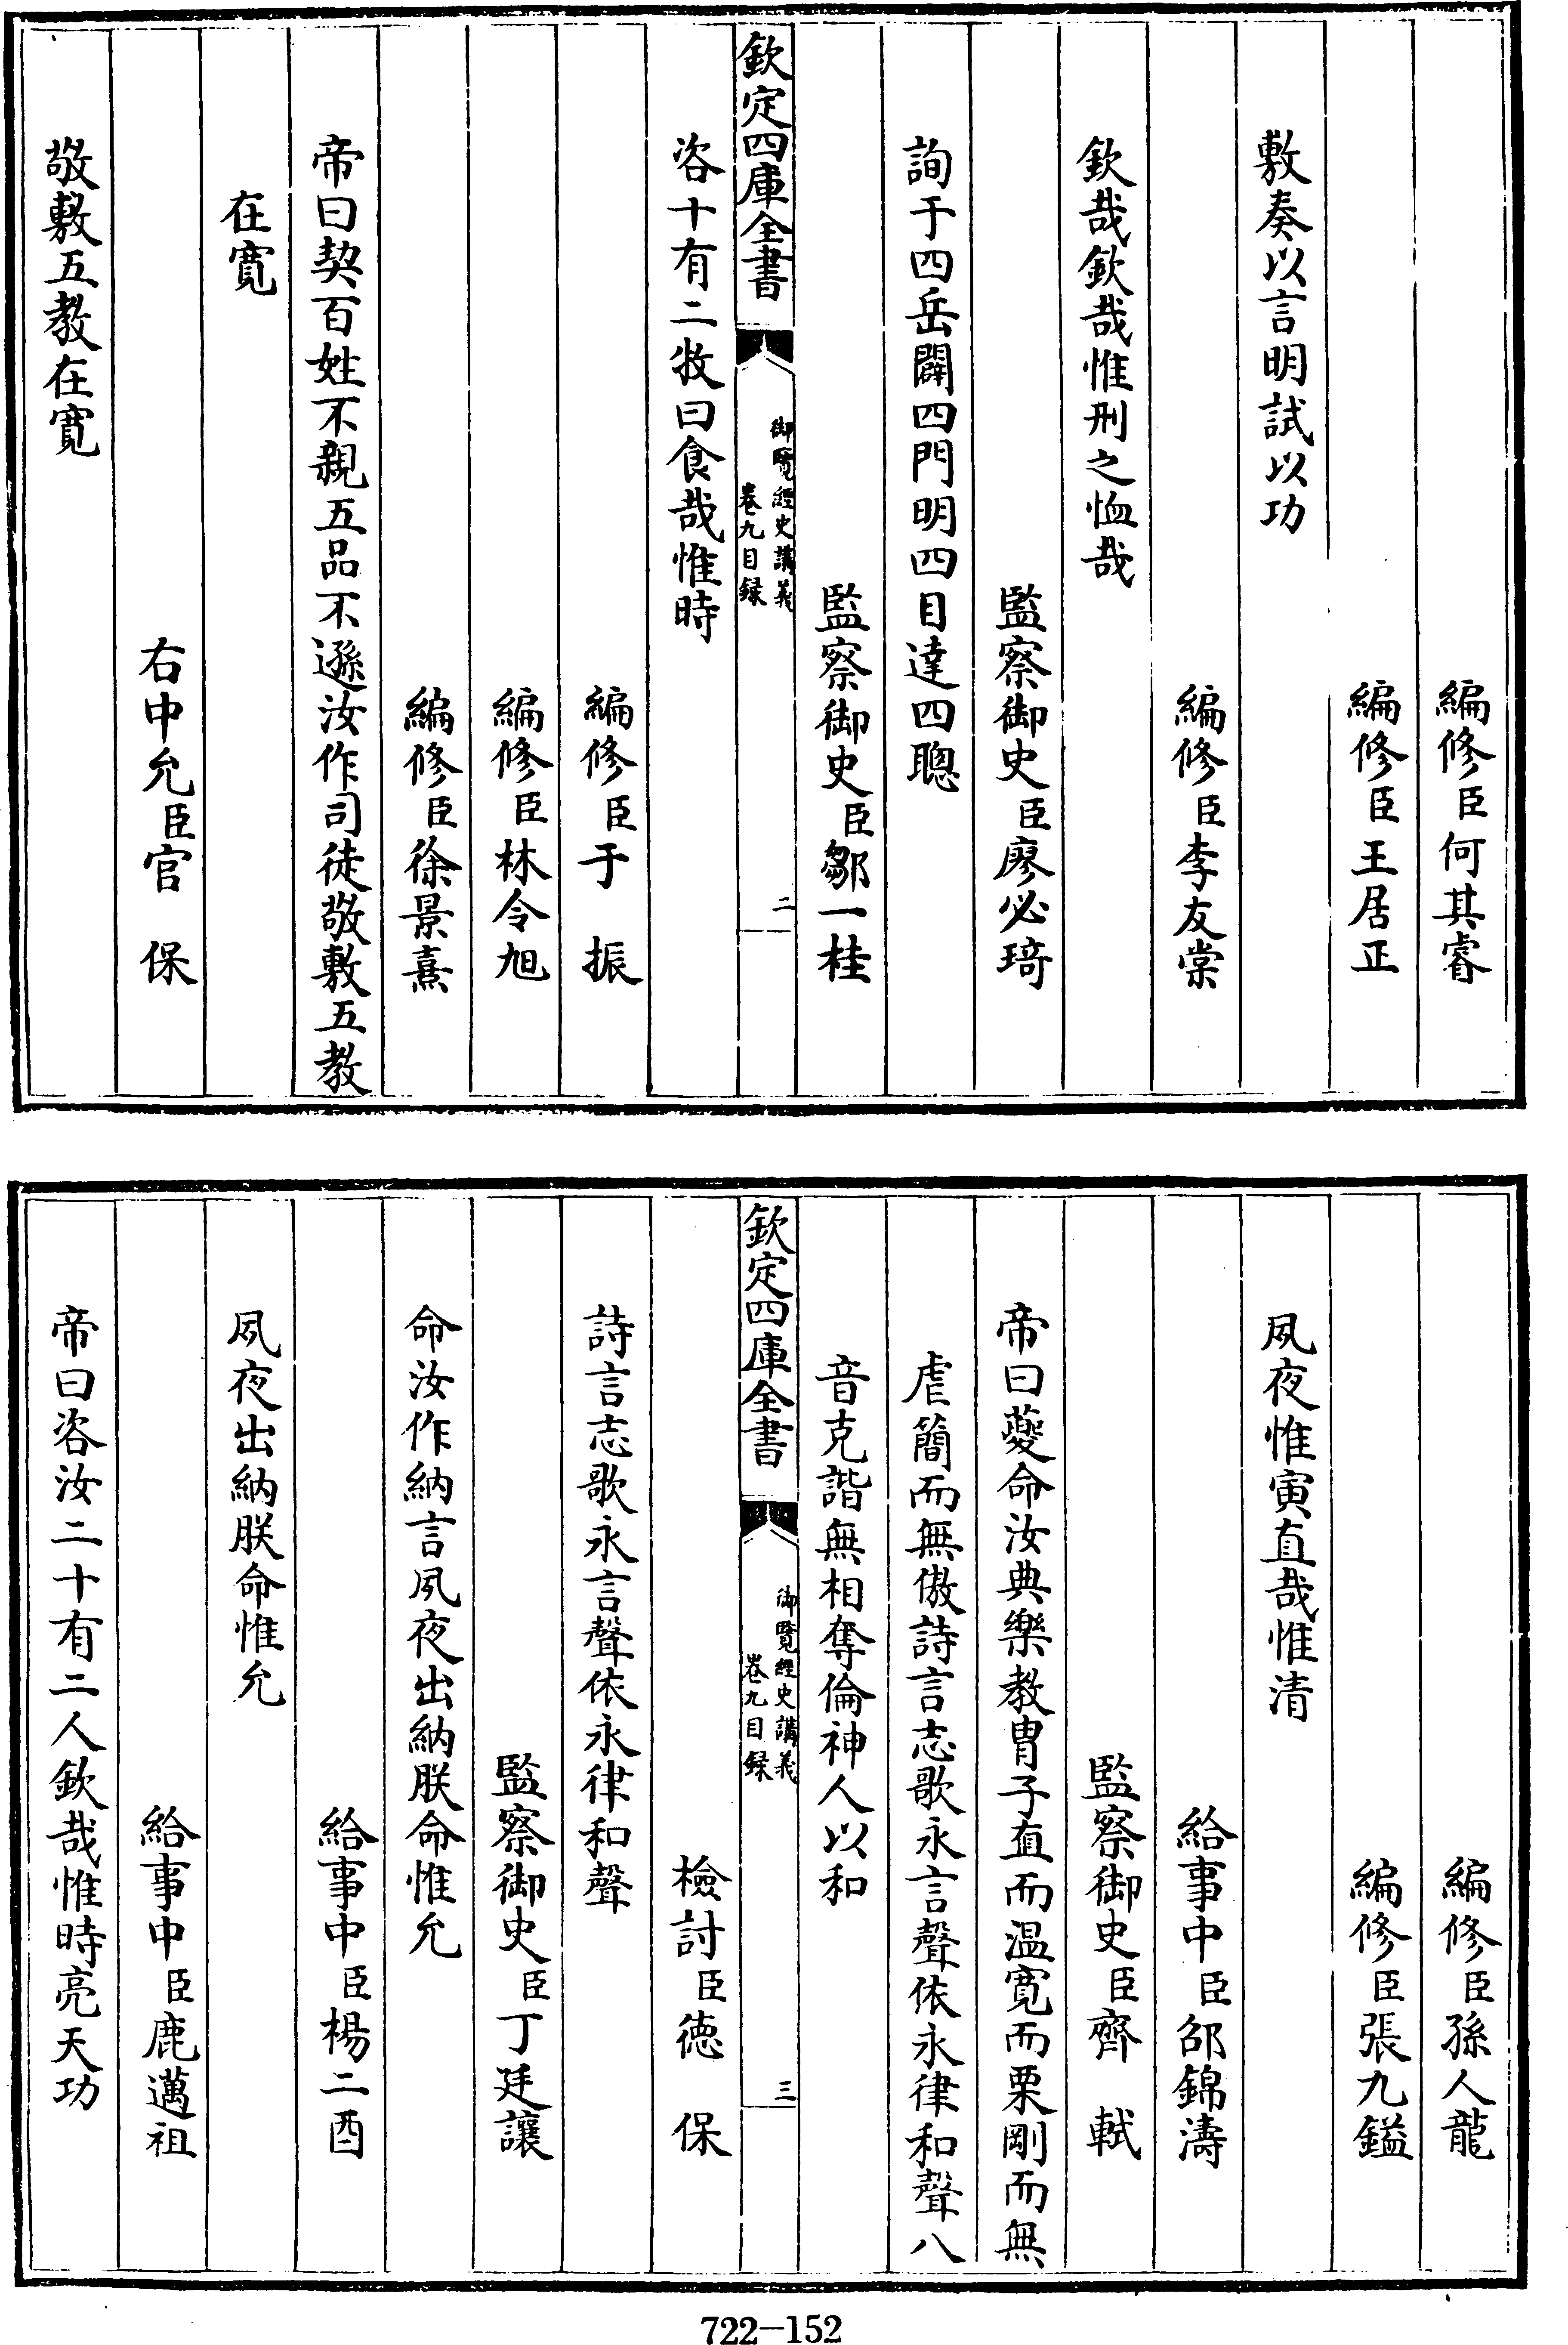 編修臣何其睿
編修臣王居正
敷奏以言明試以功
編修臣李友棠
欽哉欽哉惟刑之恤哉
監察御史臣廖必琦
詢于四岳闢四門明四目達四聰
監察御史臣鄒一桂
欽定四庫全書
御覽經史講義
卷九目録
二
咨十有二牧曰食哉惟時
編修臣于振
編修臣林令旭
編修臣徐景熹
帝曰契百姓不親五品不遜汝作司徒敬敷五教
在寛
右中允臣官保
敬敷五教在寛
編修臣孫人龍
編修臣張九鎰
夙夜惟寅直哉惟清
給事中臣邵錦濤
監察御史臣齊軾
帝曰夔命汝典樂教胄子直而温寛而栗剛而無
虐簡而無傲詩言志歌永言聲依永律和聲八
音克諧無相奪倫神人以和
欽定四庫全書
御覽經史講義
卷九目録
三
檢討臣德保
詩言志歌永言聲依永律和聲
監察御史臣丁廷讓
命汝作納言夙夜出納朕命惟允
給事中臣楊二酉
夙夜出納朕命惟允
給事中臣鹿邁祖
帝曰咨汝二十有二人欽哉惟時亮天功
722-152